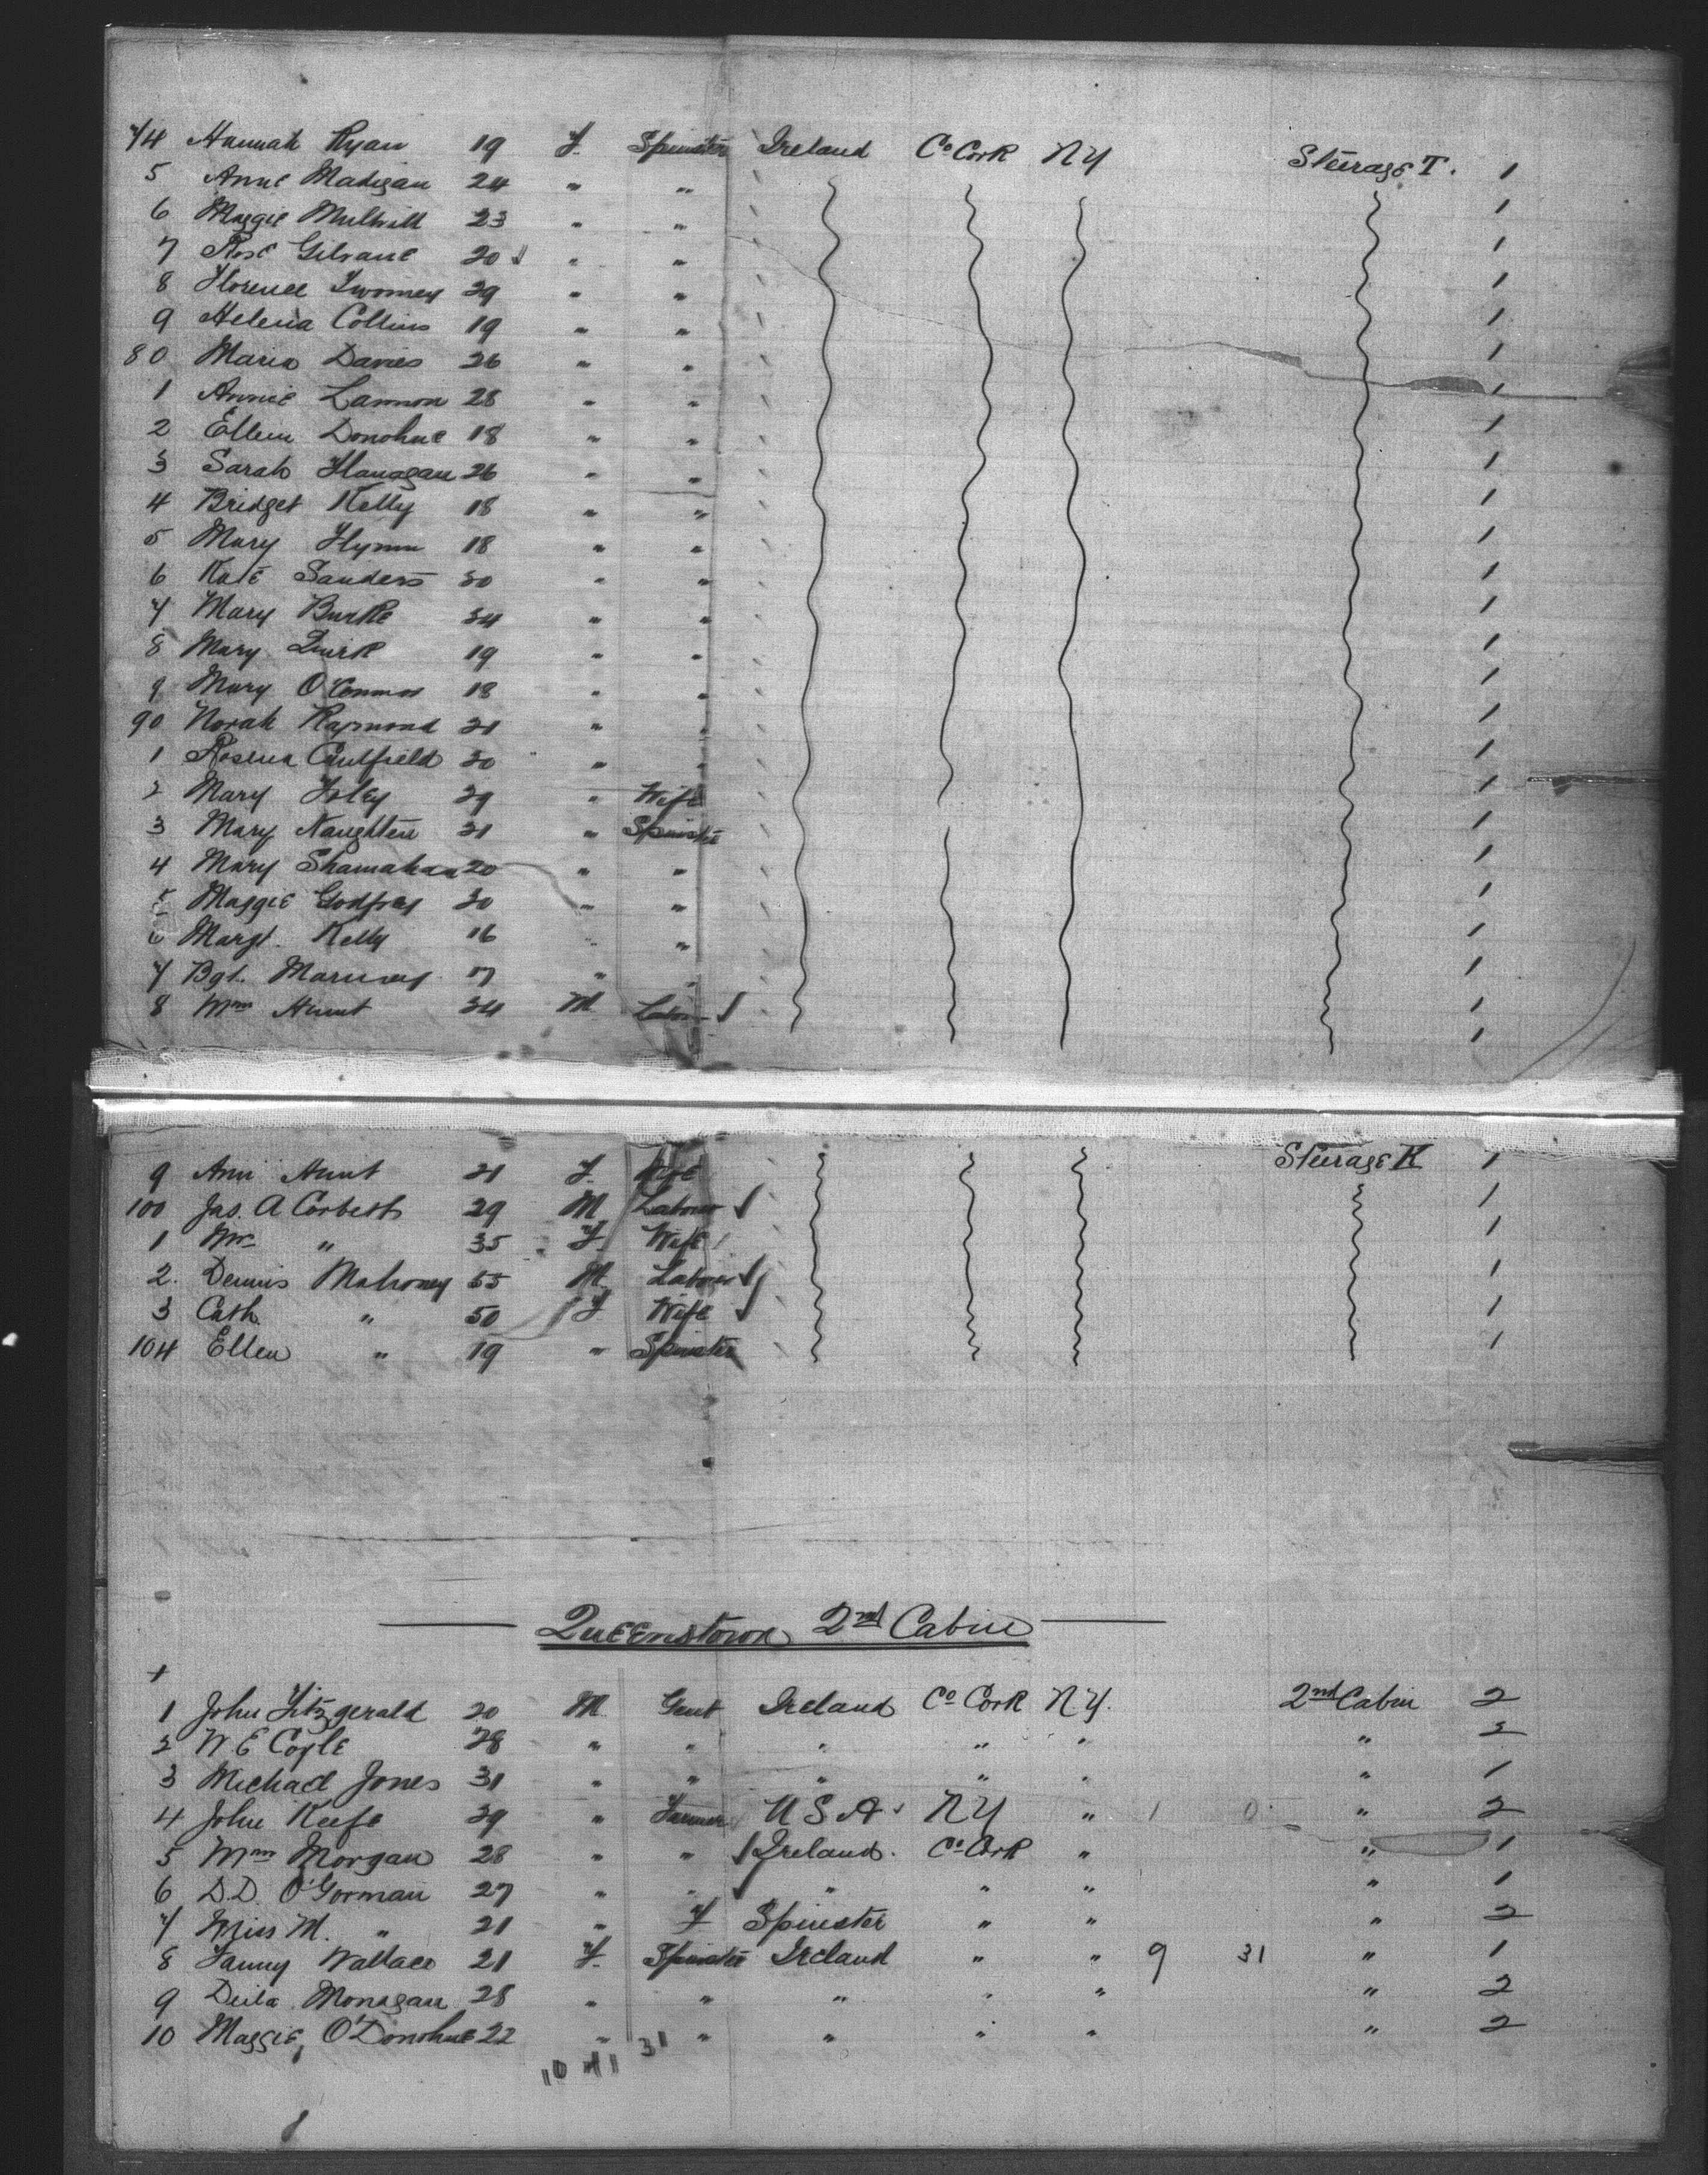 74 Hannah Ryan 19 F. Spinster Ireland Co Cork NY Steerage T. 1
5 Anne Madigan 24 " " 1
6 Maggie 23 " " 1
7 Rose Gilrane 20 " " 1
8 Florence Twomey 29 " " 1
9 Helena Collins 19 " " 1
80 Maria Davies 26 " " 1
1 Annie Lannon 28 " " 1
2 Ellen Donohue 18 " " 1
3 Sarah Flanagan 26 " " 1
4 Bridget Kelly 18 " " 1
5 Mary Flynn 18 " " 1
6 Kate Sanders 30 " " 1
7 Mary Burke 34 " " 1
8 Mary Quirk 19 " " 1
9 Mary O'Connor 18 " " 1
90 Norah Raymond 21 " " 1
1 Rosena Caulfield 20 " " 1
2 Mary 29 " Wife 1
3 Mary Naughten 21 " Spinster 1
4 Mary Shanahan 20 " " 1
5 Maggie Godfrey 20 " " 1
6 Margt. Kelly 16 " " 1
7 Bgt. 17 " " 1
8 Wm Hunt 34 M Labor 1
9 Ann Hunt 21 F. Wife Steerage K 1
100 Jas. A Corbett 29 M Labour 1
1 Mrs " 35 F. Wife 1
2. Dennis Mahoney 55 M Labour 1
3 Cath. " 50 F Wife 1
104 Ellen " 19 " Spinster 1
Queenstown 2nd Cabin
1 John Fitzgerald 20 M. Gent Ireland Co Cork NY. 2nd Cabin 2
2 W E Coyle 28 " " " " " " 2
3 Michael Jones 31 " " " " " " 1
4 John Keefe 39 " Farmer U S A NY " 1 0 " 2
5 Wm Morgan 28 " " Ireland. Co Cork " " 1
6 D.D. O'Gorman 27 " " " " " " 1
7 Miss M. " 21 " F Spinster " " " 2
8 Fanny Wallace 21 F. Spinster Ireland " " 9 31 " 1
9 Delia Monagan 28 " " " " " " 2
10 Maggie O'Donohue 22 " " " " " " 2
31